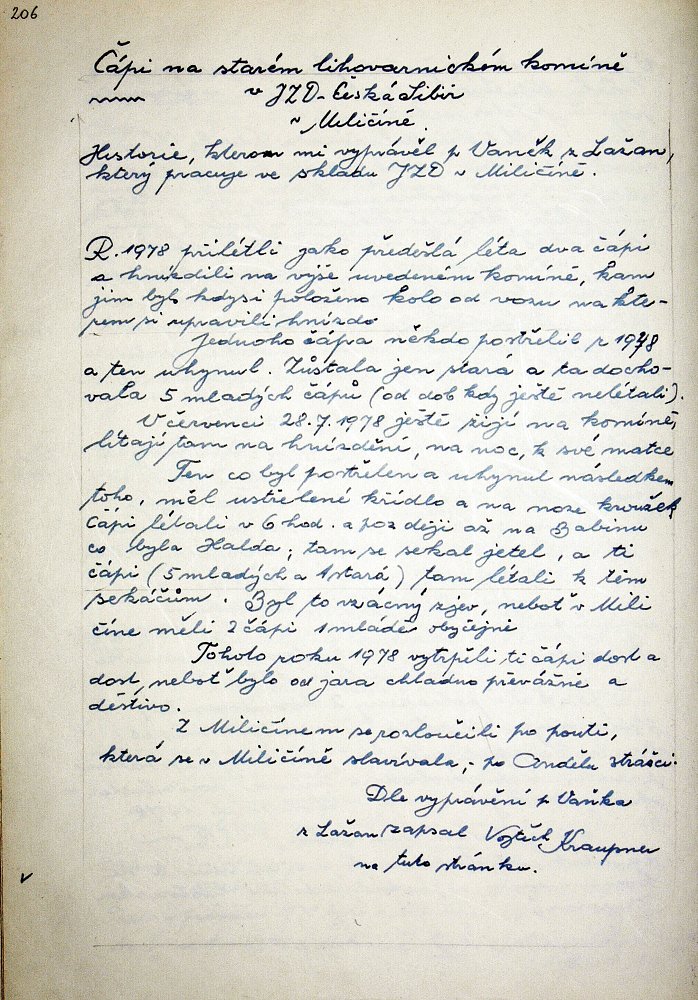 206
Čápi na starém lihovarnickém komíně
v JZD - Česká Sibiř
v Miličíně.
Historie, kterou mi vyprávěl p Vaněk z Lažan,
který pracuje ve skladu JZD v Miličíně.
R. 1978 přilétli jako předešlá léta dva čápi
a hnízdili na výše uvedeném komíně, kam
jim bylo kdysi položeno kolo od vozu na kte-
rém si upravili hnízdo
Jednoho čápa někdo postřelil r 1978
a ten uhynul. Zůstala jen stará a ta docho-
vala 5 mladých čápů (od dob kdy ještě nelétali).
V červenci 28.7.1978 ještě žijí na komíně,
lítají tam na hnízdění, na noc, k své matce
Ten co byl postřelen a uhynul následkem
toho, měl ustřelené křídlo a na noze kroužek
Čápi létali v 6 hod. a později až na Babinu
co byla Halda; tam se sekal jetel, a ti
čápi (5 mladých a 1 stará) tam létali k těm
sekáčům. Byl to vzácný zjev, neboť v Mili
číně měli 2 čápi 1 mládě obyčejně
Tohoto roku 1978 vytrpěli ti čápi dost a
dost, neboť bylo od jara chladno převážně a
deštivo.
Z Miličínem se rozloučili po pouti,
která se v Miličíně slavívala, - po Andělu strážci.
Dle vyprávění p Vaňka
z Lažan zapsal Vojtěch Kraupner
na tuto stránku.